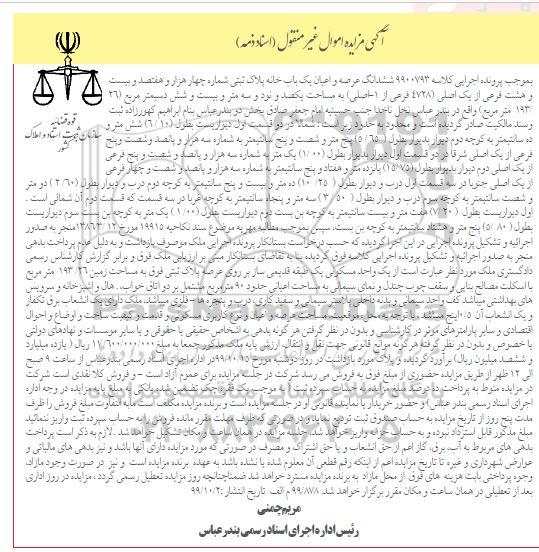 آگهی مزایده اموال غیر منقول (اسناد ذمه)
قوه قضائیه
سازمان ثبت اسناد و املاک کشور
بموجب پرونده اجرایی کلاسه ۹۹۰۰۷۹۳ ششدانگ عرصه و اعیان یک باب خانه پلاک ثبتی شماره چهار هزار و هفتصد و بیست
و هشت فرعی از یک اصلی (۴۷۲۸ فرعی از ۱-اصلی) به مساحت یکصد و نود و سه متر و بیست و شش دسیمتر مربع (۲۶
/۱۹۳ متر مربع) واقع در بندرعباس نخل ناخدا جنب حسینیه امام جعفر صادق بخش دو بندرعباس بنام ابراهیم کهورزاده ثبت
وسند مالکیت صادر گردیده است و محدود به حدود زیر است : شمالا در دو قسمت اول دیواریست بطول (۶/۱۰) شش متر و
ده سانتیمتر به کوچه دوم دیوار بدیوار بطول (۵/۶۵) پنج متر و شصت و پنج سانتیمتر به شماره سه هزار و پانصد وشصت وپنج
فرعی از یک اصلی شرقا در دو قسمت اول دیوار بدیوار بطول (۱/۰۰) یک متر به شماره سه هزار و پانصد و شصت و پنج فرعی
از یک اصلی دوم دیوار بدیوار بطول (۱۵/۷۵) پانزده متر و هفتاد و پنج سانتیمتر به شماره سه هزار و پانصد و شصت و چهار فرعی
از یک اصلی جنوبا در سه قسمت اول درب و دیوار بطول (۱۰/۲۵) ده متر و بیست و پنج سانتیمتر به کوچه دوم درب و دیوار بطول (۲/۶۰) دو متر
و شصت سانتیمتر به کوچه سوم درب و دیوار بطول (۳/۵۰) سه متر و پنجاه سانتیمتر به کوچه غربا در سه قسمت که قسمت دوم آن شمالی است .
اول دیواریست بطول (۷/۲۰) هفت متر و بیست سانتیمتر به کوچه بن بست دوم دیواریست بطول (۱/۰۰) یک متر به کوچه بن بست سوم دیواریست
بطول (۵/۸۰) پنج متر و هشتاد سانتیمتر به کوچه بن بست، سپس بموجب مطالبه مهریه به موضوع سند نکاحیه ۱۹۹۱۵ مورخ ۱۳۸۶/۳/۱۲ منجر به صدور
اجرائیه و تشکیل پرونده اجرایی در این اجرا گردیده که حسب درخواست بستانکار پرونده اجرایی ملک موصوف بازداشت و به دلیل عدم پرداخت بدهی
منجر به صدور اجرائیه و تشکیل پرونده اجرایی کلاسه فوق گردیده بنا به تقاضای بستانکار مبنی بر ارزیابی ملک فوق و برابر گزارش کارشناس رسمی
دادگستری ملک مورد نظر عبارت است از یک واحد مسکونی یک طبقه قدیمی ساز بر روی عرصه پلاک ثبتی فوق به مساحت زمین ۱۹۳/۲۶ متر مربع
با اسکلت مصالح بنایی و سقف چوب چندل و نمای سیمانی به مساحت اعیانی حدود ۹۰ متر مربع مشتمل بر دو اتاق خواب، هال و آشپزخانه و سرویس
های بهداشتی میباشد کف واحد سیمانی و بدنه داخلی پلاستر سیمانی و سفید کاری، درب و پنجره ها – فلزی میباشد، ملک دارای یک انشعاب برق تکفاز
و یک انشعاب آب ۰/۵ اینچ میباشد. با توجه به محل، موقعیت، مساحت عرصه و اعیان و نوع کاربری مسکونی و قدمت و کیفیت ساخت و اوضاع و احوال
اقتصادی و سایر پارامترهای موثر در کارشناسی و بدون در نظر گرفتن هر گونه بدهی به اشخاص حقیقی یا حقوقی و یا سایر موسسات و نهادهای دولتی
یا خصوص و بدون در نظر گرفتن هرگونه موانع قانونی جهت نقل و انتقال، ارزش پایه ملک مذکور جمعا به مبلغ ۱۱/۶۰۰/۰۰۰/۰۰۰ ریال (یازده میلیارد
و ششصد میلیون ریال) برآورد گردیده و پلاک مورد بازداشت در روز دوشنبه مورخ ۹۹/۱۰/۱۵ در اداره اجرای اسناد رسمی بندرعباس از ساعت ۹ صبح
الی ۱۲ ظهر از طریق مزایده حضوری از مبلغ فوق به فروش می رسد شرکت در جلسه مزایده برای عموم آزاد است – و فروش کلا نقدی است شرکت
در مزایده منوط به پرداخت ده درصد مبلغ مزایده به حساب سپرده ثبت
اجرای اسناد رسمی بندرعباس) و حضور خریدار یا نماینده قانونی او در جلسه مزایده است و برنده مزایده مکلف است مابه التفاوت مبلغ فروش را ظرف
مدت پنج روز از تاریخ مزایده به حساب صندوق ثبت تودیع نماید و در صورتی که ظرف مهلت مقرر مانده فروش را به حساب سپرده ثبت واریز ننمائید
مبلغ مذکور قابل استرداد نبوده و به حساب خزانه واریز خواهد شد جلسه مزایده در همان ساعت و مکان تشکیل خواهد شد. لازم به ذکر است پرداخت
بدهی های مربوط به آب، برق، گاز اعم از حق انشعاب و یا حق اشتراک و مصرف در صورتی که مورد مزایده دارای آنها باشد و نیز بدهی های مالیاتی و
عوارض شهرداری و غیره تا تاریخ مزایده اعم از اینکه رقم قطعی آن معلوم شده یا نشده باشد به عهده برنده مزایده است و نیز در صورت وجود مازاد،
وجوه پرداختی بابت هزینه های فوق از محل مازاد به برنده مزایده مسترد خواهد شد ضمناچنانچه روز مزایده تعطیل رسمی گردد ، مزایده در روز اداری
بعد از تعطیلی در همان ساعت و مکان مقرر برگزار خواهد شد ۹۹/۸۷۸ م الف تاریخ انتشار :۹۹/۱۰/۲
مریم چمنی
رئیس اداره اجرای اسناد رسمی بندرعباس